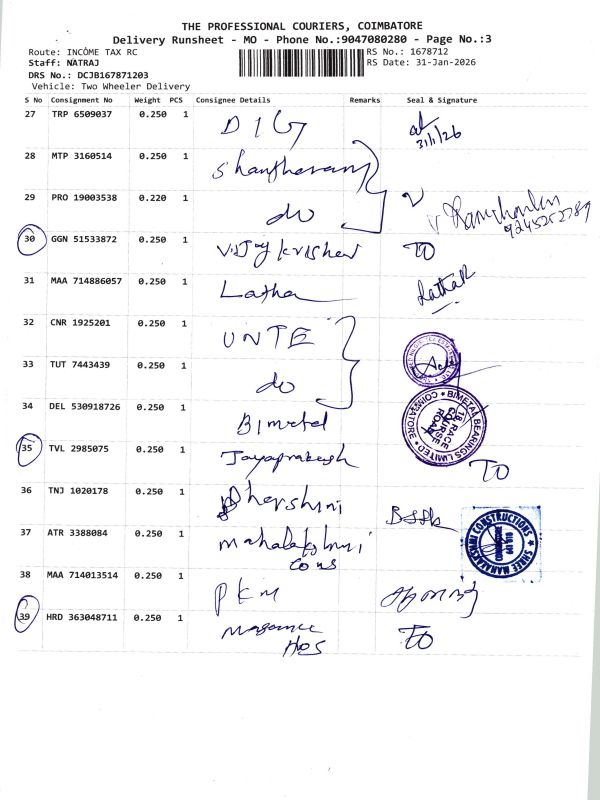 THE PROFESSIONAL COURIERS, COIMBATORE
Delivery Runsheet - MO - Phone No.:9047080280 - Page No.:3
Route: INCOME TAX RC RS No.: 1678712
Staff: NATRAJ RS Date: 31-Jan-2026
DRS No.: DCJB167871203
Vehicle: Two Wheeler Delivery
S No Consignment No Weight PCS Consignee Details Remarks Seal & Signature
27 TRP 6509037 0.250 1 DIG
31/1/26
28 MTP 3160514 0.250 1
29 PRO 19003538 0.220 1 do
9245252789
30 GGN 51533872 0.250 1 TO
31 MAA 714886057 0.250 1 Latha
32 CNR 1925201 0.250 1 UNTE
33 TUT 7443439 0.250 1 do
34 DEL 530918726 0.250 1 Bimetal
BIMETAL BEARINGS LIMITED COIMBATORE
18 RACE COURSE ROAD
35 TVL 2985075 0.250 1 Jayaprakash TO
36 TNJ 1020178 0.250 1 Dharshini
37 ATR 3388084 0.250 1 mahalakshmi
cons
SHREE MAHALAKSHMI CONSTRUCTIONS
38 MAA 714013514 0.250 1 PKM
39 HRD 363048711 0.250 1 TO
Hos